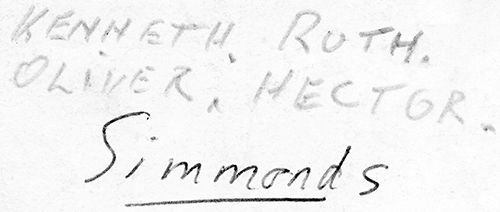 KENNETH. RUTH.
OLIVER. HECTOR.
Simmonds